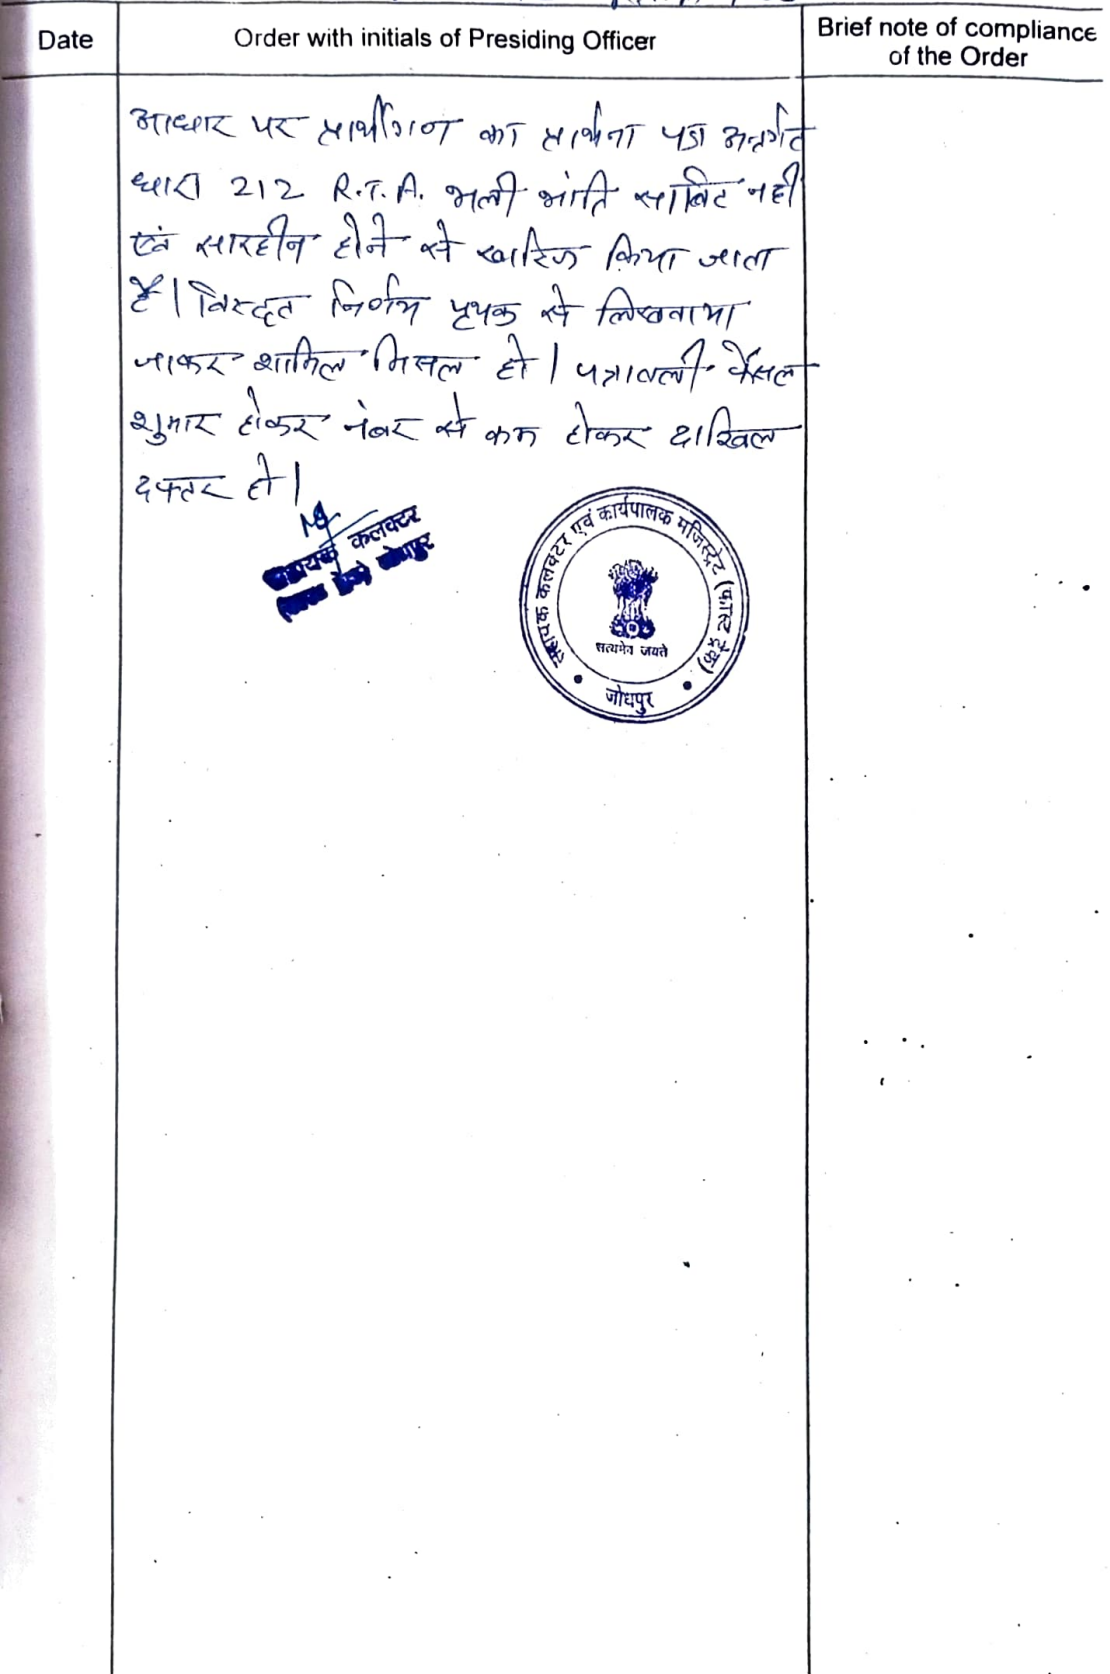 Date
Order with initials of Presiding Officer
Brief note of compliance
of the Order
आधार पर प्रार्थीगण का प्रार्थना पत्र अन्तर्गत
धारा 212 R.T.A. भली भांति साबित नही
एवं सारहीन होने से खारिज किया जाता
है। विस्तृत निर्णय पृथक से लिखवाया
जाकर शामिल मिसल हो। पत्रावली फैसल
शुमार होकर नंबर से कम होकर दाखिल
दफ्तर हो।
सहायक कलक्टर
जोधपुर
सहायक कलक्टर एवं कार्यपालक मजिस्ट्रेट (फास्ट ट्रेक)
सत्यमेव जयते
जोधपुर